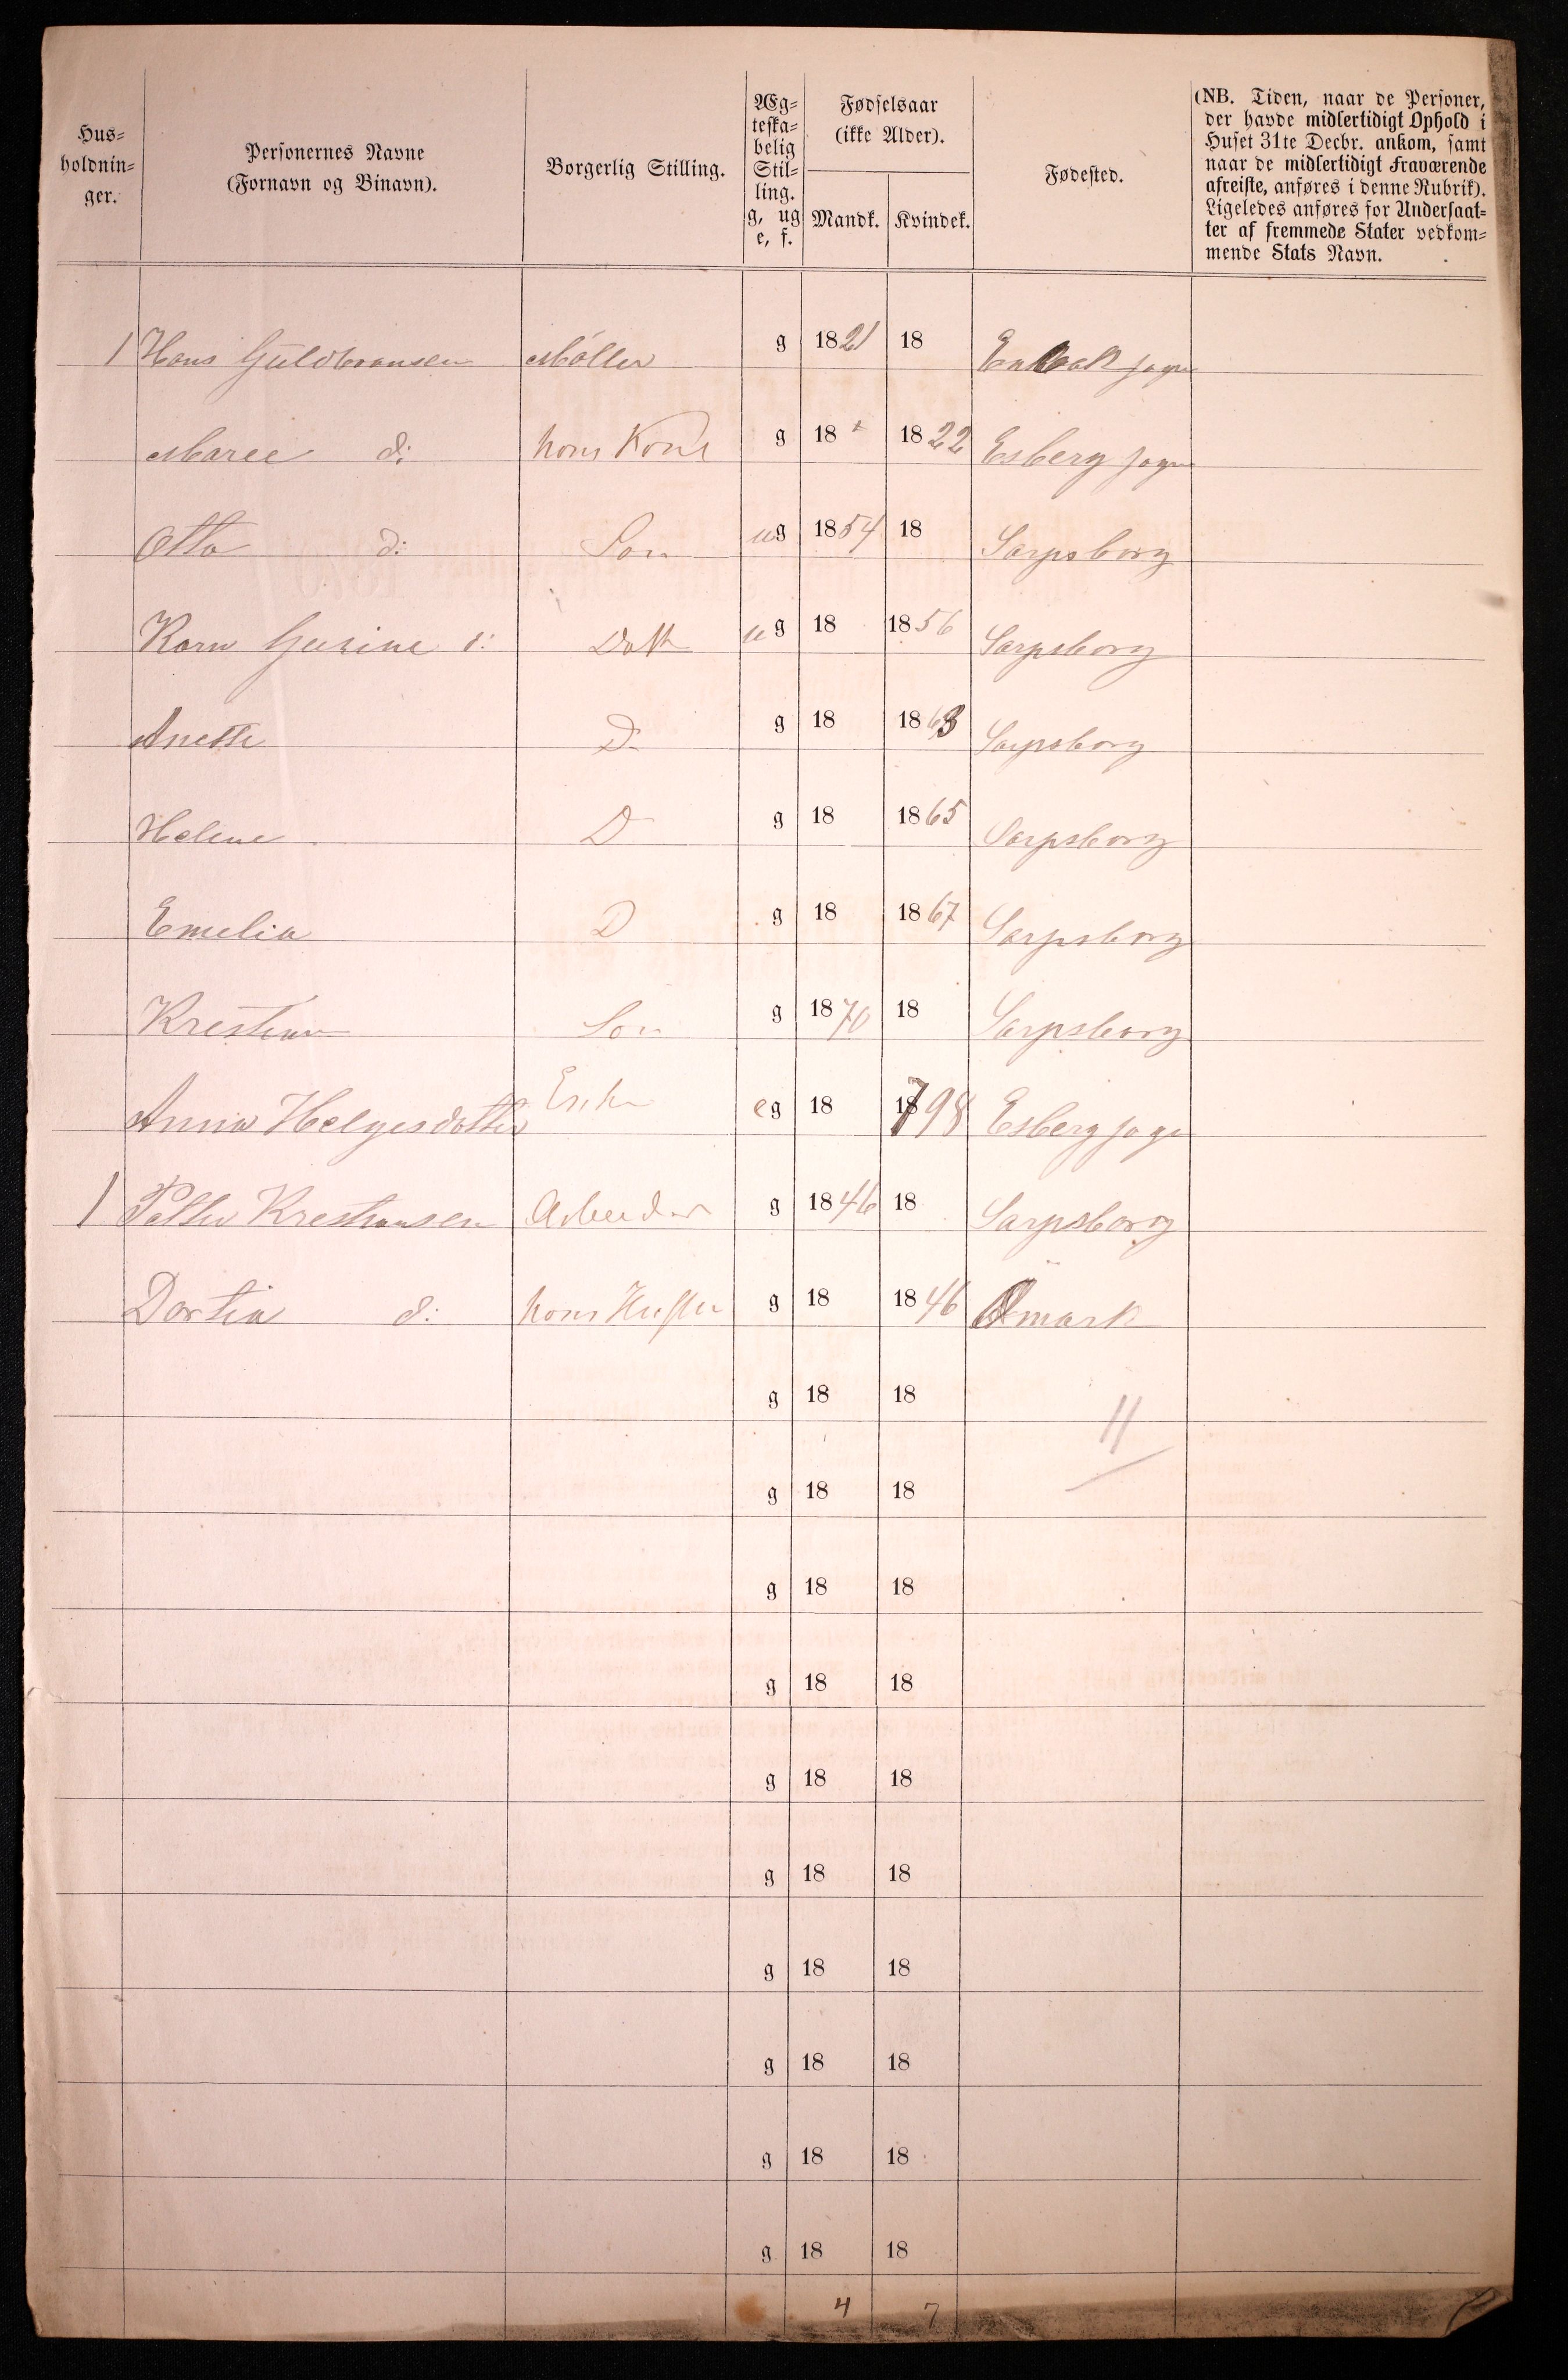 Hus-
holdnin-
ger.
Personernes Navne
(Fornavn og Binavn).
Borgerlig Stilling.
Æg-
teska-
belig
Stil-
ling.
g, ug
e, f.
Fødselsaar
(ikke Alder).
Mandk. Kvindek.
Fødested.
(NB. Tiden, naar de Personer,
der havde midlertidigt Ophold i
Huset 31te Decbr. ankom, samt
naar de midlertidigt Fraværende
afreiste, anføres i denne Rubrik).
Ligeledes anføres for Undersaat-
ter af fremmede Stater vedkom-
mende Stats Navn.
1 Hans Guldbransen Møller g 1821 18 Enebak sogn
Maree d: hans Kone g 18 1822 Esberg sogn
Otto d: Son ug 1854 18 Sarpsborg
Karn Gusine d: Datt ug 18 1856 Sarpsborg
Anette D g 18 1863 Sarpsborg
Helene D g 18 1865 Sarpsborg
Emelia D g 18 1867 Sarpsborg
Krestian Son g 1870 18 Sarpsborg
Anna Helgesdatter Enke eg 18 1798 Esberg sogn
1 Petter Krestiansen Arbeider g 1846 18 Sarpsborg
Dortia d: hans Hustru g 18 1846 Ømark
g 18 18
11
g 18 18
g 18 18
g 18 18
g 18 18
g 18 18
g 18 18
g 18 18
g 18 18
g 18 18
4 7